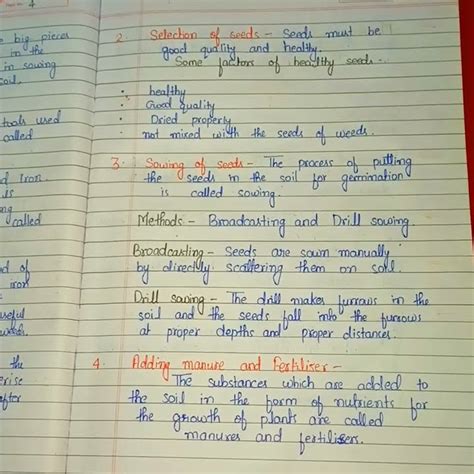 4
big pieces
in the
in sowing
soil.
tools used
called
iron.
is
called
of
iron
useful
the
after
2. Selection of seeds - Seeds must be
good quality and healthy.
Some factors of healthy seeds -
• healthy
• Good quality
• Dried properly
• not mixed with the seeds of weeds.
3. Sowing of seeds - The process of putting
the seeds in the soil for germination
is called sowing.
Methods - Broadcasting and Drill sowing.
Broadcasting - Seeds are sown manually
by directly scattering them on soil.
Drill sowing - The drill makes furrows in the
soil and the seeds fall into the furrows
at proper depths and proper distances.
4. Adding manure and Fertiliser -
The substances which are added to
the soil in the form of nutrients for
the growth of plants are called
manures and fertilisers.